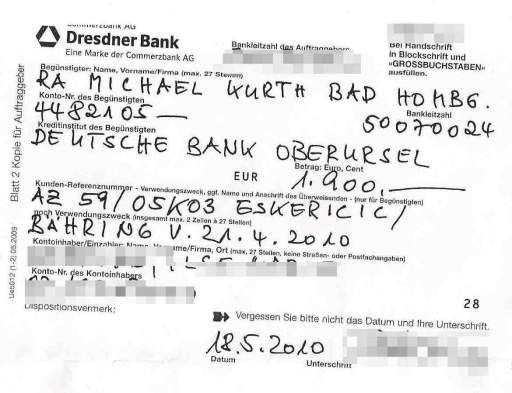 Commerzbank AG
Dresdner Bank
Eine Marke der Commerzbank AG
Bankleitzahl des Auftraggebers
Bei Handschrift
in Blockschrift und
»GROSSBUCHSTABEN«
ausfüllen.
Begünstigter: Name, Vorname/Firma (max. 27 Stellen)
RA MICHAEL KURTH BAD HOMBG.
Konto-Nr. des Begünstigten
Bankleitzahl
4482105
50070024
Kreditinstitut des Begünstigten
DEUTSCHE BANK OBERURSEL
Betrag: Euro, Cent
EUR
1.900,
Kunden-Referenznummer - Verwendungszweck, ggf. Name und Anschrift des Überweisenden - (nur für Begünstigten)
AZ 59/05K03 ESKERICIC/
noch Verwendungszweck (insgesamt max. 2 Zeilen à 27 Stellen)
BÄHRING V. 21.4.2010
Kontoinhaber/Einzahler: Name, Vorname/Firma, Ort (max. 27 Stellen, keine Straßen- oder Postfachangaben)
Konto-Nr. des Kontoinhabers
28
Dispositionsvermerk:
Vergessen Sie bitte nicht das Datum und Ihre Unterschrift.
18.5.2010
Datum
Unterschrift
Blatt 2 Kopie für Auftraggeber
Ueb012 (1-2) 05.2009